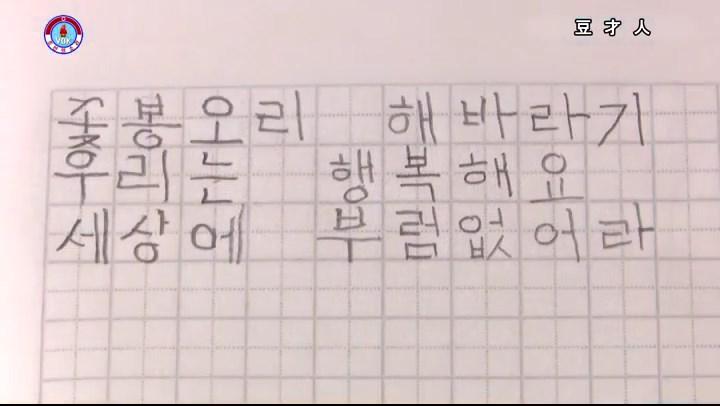 VOK
豆才人
꽃봉오리 해바라기
우리는 행복해요
세상에 부럼없어라